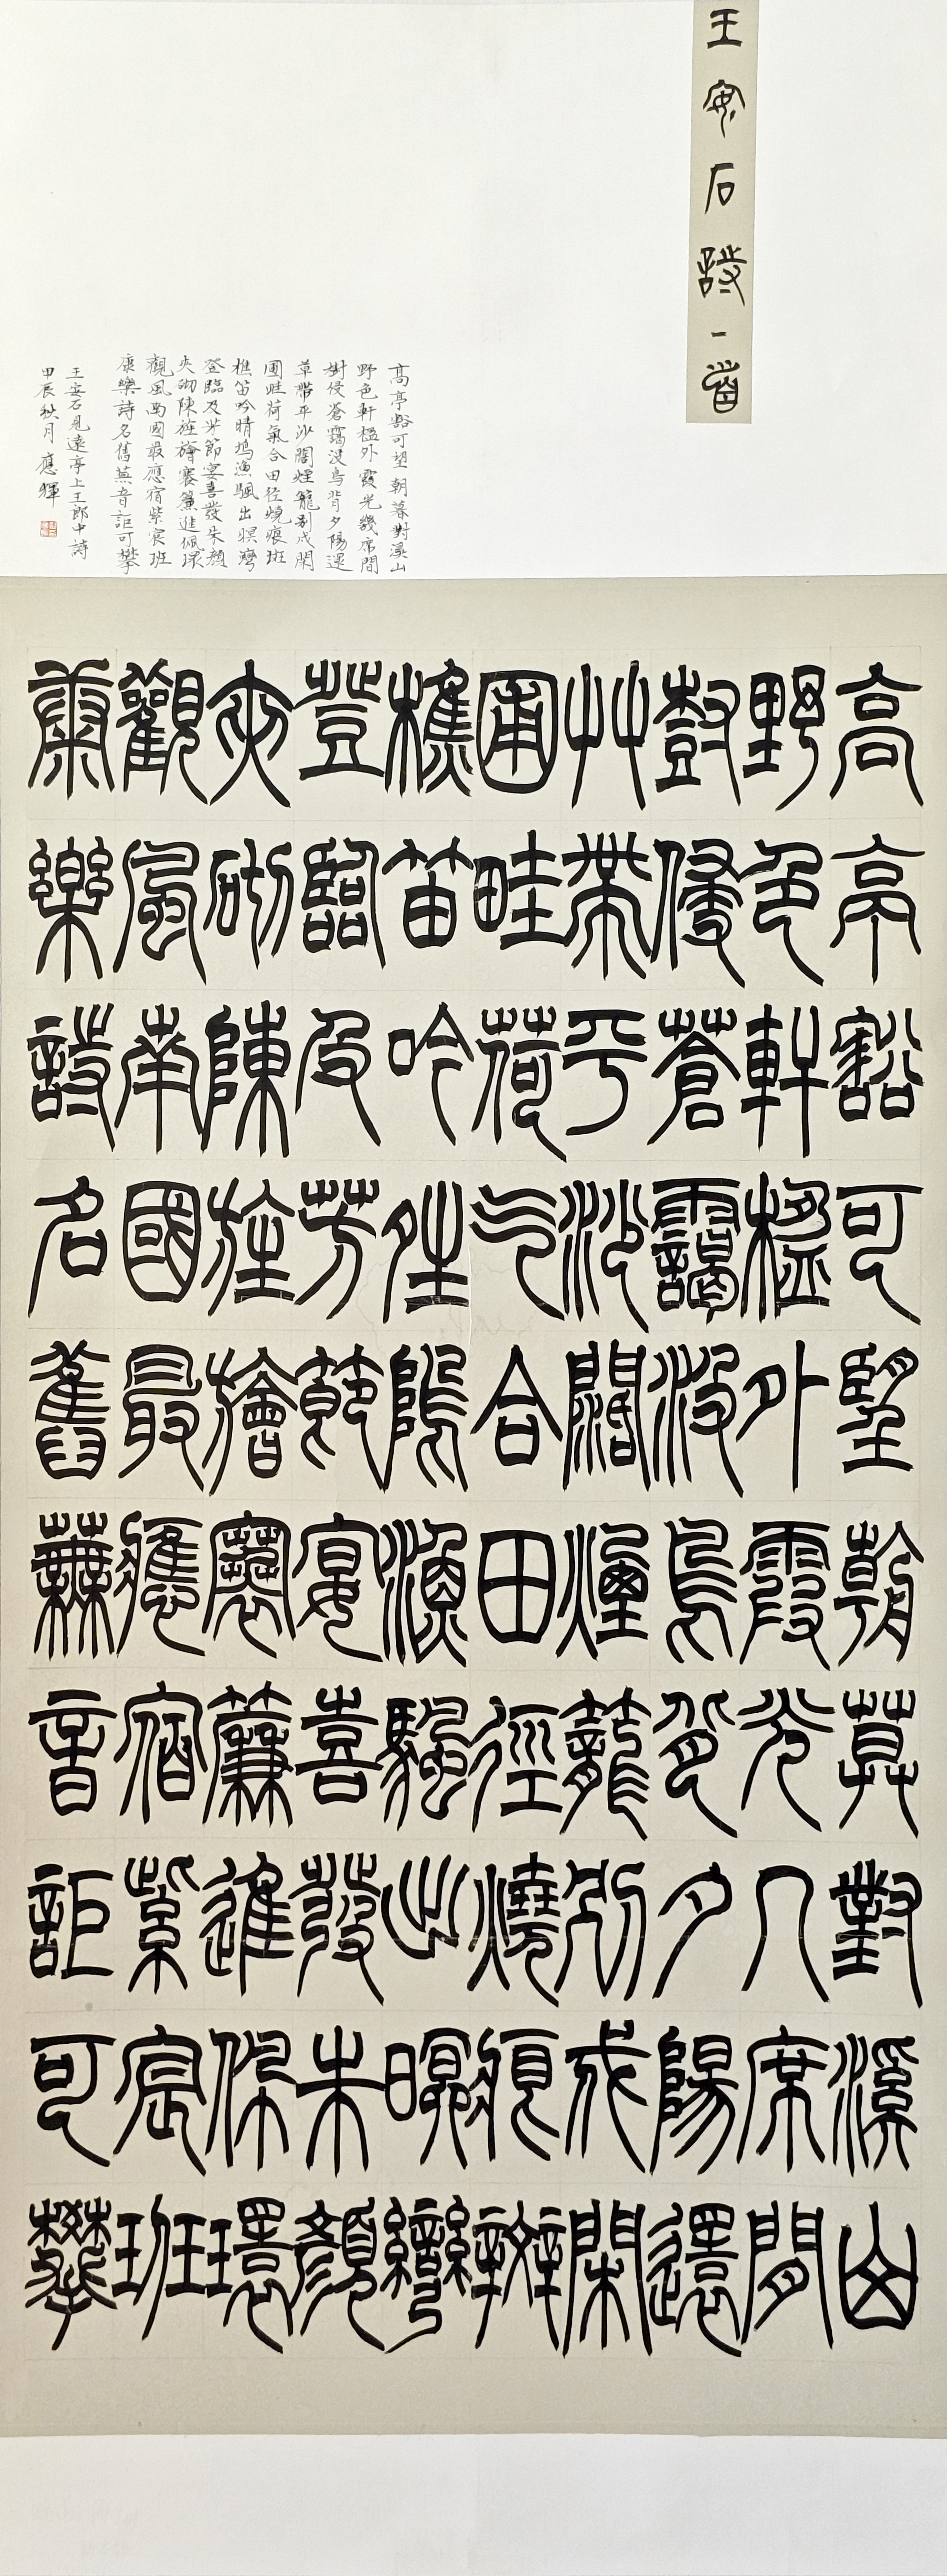 王安石詩一首
高亭豁可望朝暮對溪山
野色軒楹外霞光幾席間
樹侵蒼靄沒鳥背夕陽還
草帶平沙闊煙籠別戍閑
圃畦荷氣合田徑燒痕斑
樵笛吟晴塢漁颿出暝灣
登臨及芳節宴喜發朱顏
夾砌陳旌旝褰簾進佩環
觀風南國最應宿紫宸班
康樂詩名舊蕪音詎可攀
王安石見遠亭上王郎中詩
甲辰秋月 應輝
高亭豁可望朝莫對溪山
野色軒楹外霞光几席間
尌侵蒼靄沒鳥背夕陽還
艸帶平沙闊煙籠別戍閑
圃畦荷气合田徑燒痕辬
樵笛吟姓隖漁颿出暝灣
登臨及芳節宴喜發朱顏
夾砌陳旌旝褰簾進佩環
觀風南國最應宿紫宸班
康樂詩名舊蕪音詎可攀